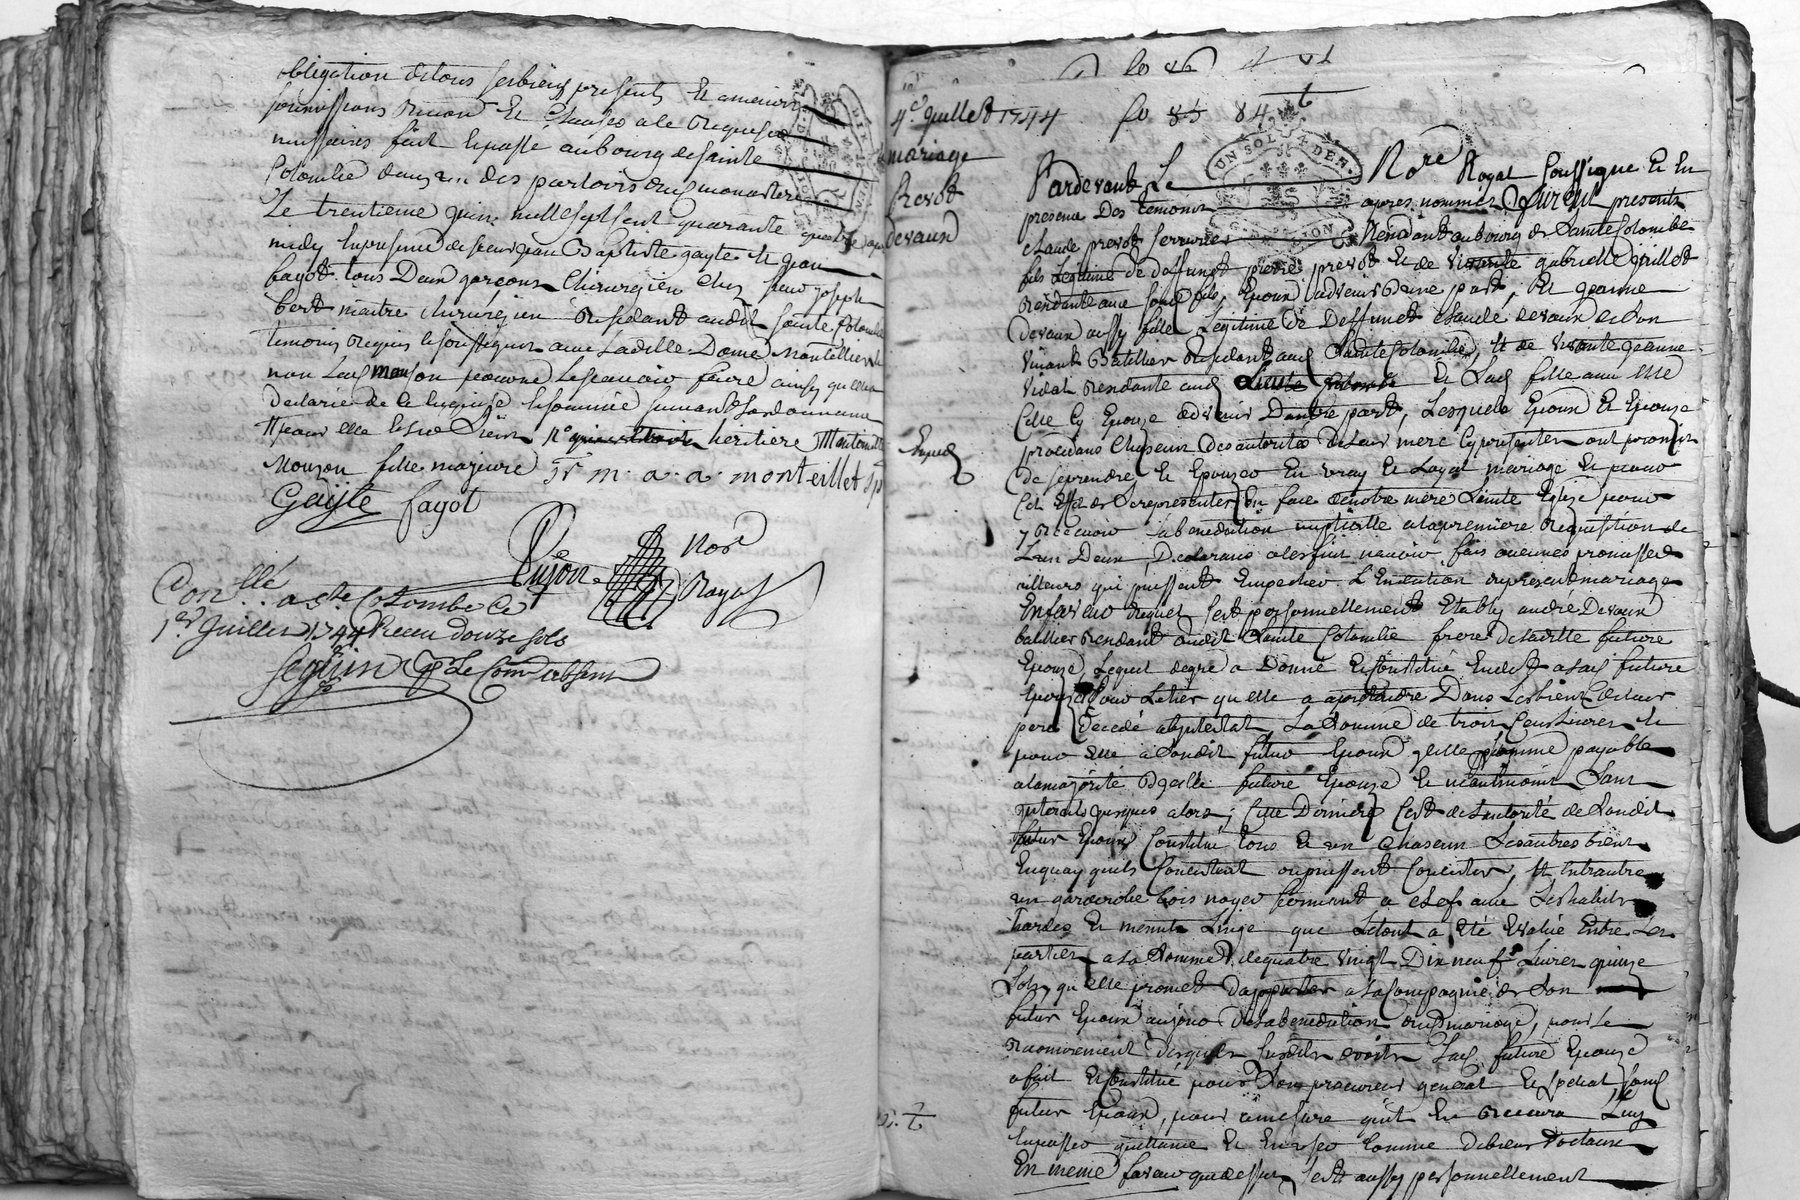 obligation de tous ses biens presents et avenirs
soumissions renon et clauses a le requises
necessaires fait et passé au bourg de sainte
Colombe dans un des parloirs dud monastere
Le trentieme juin mille sept cent quarante quatre apres
midy en presence de sieur jean Baptiste gayte et jean
fayot tous Deux garçons Chirurgien chez sieur joseph
bert maitre chirurgien residant audit sainte Colombe
temoins requis et soussignes avec ladite Dame Monteillet
non lad mouzon pour ne le scavoir faire ainsy qu'elle a
declaré de ce enquise et sommée suivant l'ordonnance
heritiere
Mouzon fille majeure Sr m. a. a. monteillet
Gayte fayot
Dujon Nore
Royal
Conllé a Ste Colombe le
1er Juillet 1744 Receu douze sols
Seguin pr Le Comis absent
4e Juillet 1744 fo 85 84
mariage
prevot
devaux
Pardevant Le Nore Royal soussigné et en
presence Des temoins apres nommés furent presents
claude prevot serrurier residant au bourg de Sainte Colombe
fils Legitime de deffunct pierre prevot et de vivante gabrielle guillot
residante avec sond fils, Epoux advenir D'une part, Et jeanne
devaux aussy fille Legitime de Deffunct claude devaux de son
vivant Batellier residant aud Sainte Colombe, et de vivante jeanne
vidal residante aud Sainte Colombe et Lad fille avec Elle
Cette cy Epouze advenir D'autre part, Lesquels Epoux et Epouze
procedans Chascun de autorité de leur mere cy presentes ont promis
de se prendre et Epouzer En vray et Loyal mariage et pour
Cet effet de se representer en face de notre mere Sainte Eglize pour
y recevoir la benediction nuptialle a la premiere requisition de
L'un Deux, Declarans a les fins n'avoir fait aucunes promesses
ailleurs qui puissent Empecher L'Execution du present mariage
En faveur duquel s'est personnellement Etably andré Devaux
batellier residant audit Sainte Colombe frere de ladite future
Epouze Lequel degre a Donné et Constitué a lad future
Epouze pour Celle qu'elle a a pretendre Dans les biens de leur
pere decedé abintestat, La somme de trois Cens Livres et
pour Elle a sondit futur Epoux icelle somme payable
a la majorité D'icelle future Epouze et neantmoins Sans
interets jusques alors; Cette Derniere s'est de l'autorité de sondit
futur Epoux Constitué tous et un chascun Ses autres biens
En quoy quils Consistent ou puissent Consister, Et Entrautre
un garderobe bois noyer fermant a clef avec Ses habits
hardes et menus Linge que Letout a été Evalué Entre Les
parties a la somme de quatre vingt Dix neuf Livres quinze
sols, qu'elle promet d'apporter a la Compagnie de Son
futur Epoux au jour de la benediction dud mariage, pour le
recouvrement desquels susdits droits Lad future Epouze
a fait et Constitué pour Son procureur general et special sond
futur Epoux, pour a mesure qu'il En recevra Luy
En passer quittance et En user comme de biens dotaux
En meme faveur que dessus s'est aussy personnellement